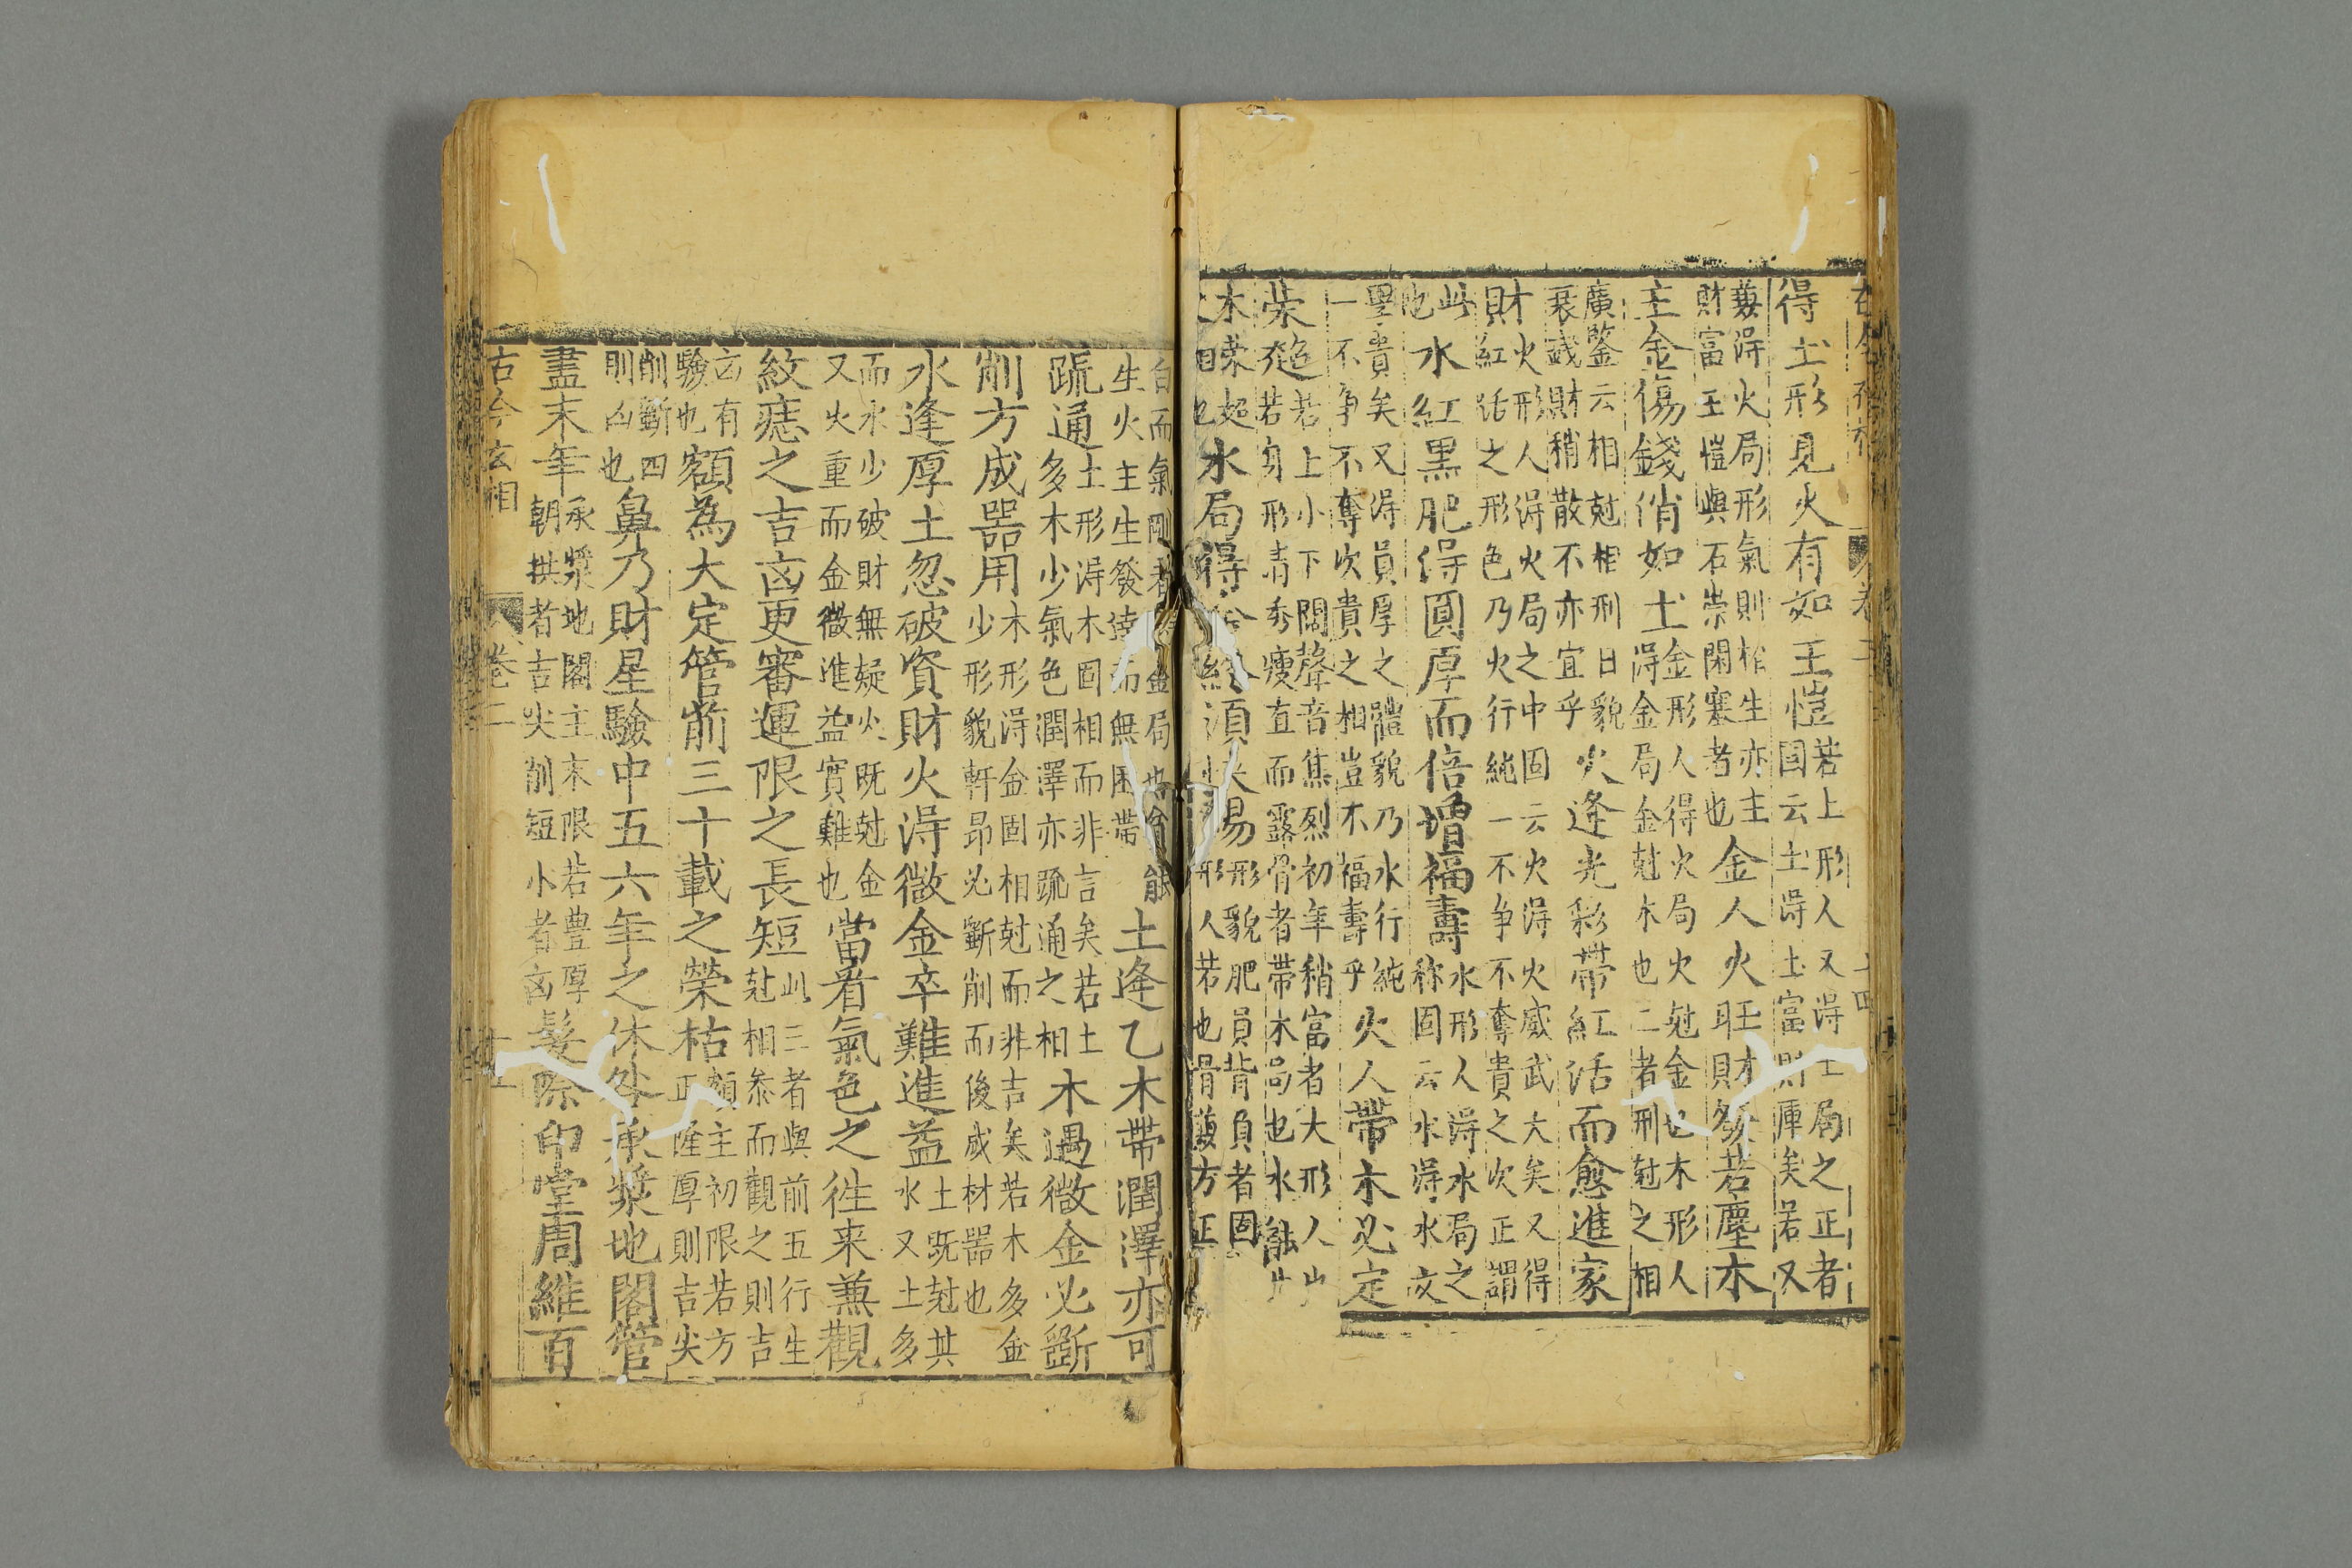 得土形見火有如王愷若上形人又得土局之正者
固云土得土富財庫矣若又
兼得火局形氣則相生亦主
財富王愷與石崇閑塞者也金人火旺財發若塵木
主金傷錢俏如土金形人得火局火尅金也木形人
得金局金尅木也二者刑尅之相
廣鑒云相尅相刑日貌
衰錢財稍散不亦宜乎火逢光彩帶紅活而愈進家
財火形人得火局之中固云火得火威武大矣又得
紅活之形色乃火行純一不争不奪貴之次正謂
此
也水紅黑肥得圓厚而倍增福壽水形人得水局之
称固云水得水文
學貴矣又得員厚之體貌乃水行純
一不争不奪次貴之相豈不福壽乎火人帶木必定
荣超若上小下闊聲音焦烈初年稍富者大形人
若身形青秀瘦直而露骨者帶木局也水
木荣超
相也水局得須形貌肥員背負者固
形人若也骨方正
白而氣剛金局
生火主生發達而無困帶土逢乙木帶潤澤亦可
疏通土形得木固相相而非言矣若土
多木少氣色潤澤亦疏通之相木遇微金必斵
削方成噐用木形得金固相尅而非吉矣若木多金
少形貌軒昂必斵削而後成材噐也
水逢厚土忽破資財火得微金卒難進益土既尅其
水又土多
而水少破財無疑火既尅金
又火重而金微進益實難也當看氣色之徃来兼觀
紋痣之吉凶更審運限之長短此三者與前五行生
尅相叅而觀之則吉
凶有
驗也額為大定管前三十載之榮枯額主初限若方
正隆厚則吉尖
削斵四
則凶也鼻乃財星驗中五六年之休咎承漿地閣管
盡末年承漿地閣主末限若豊厚
朝拱者吉尖削短小者凶髮際印堂周維百
古今玄相 卷二 十五